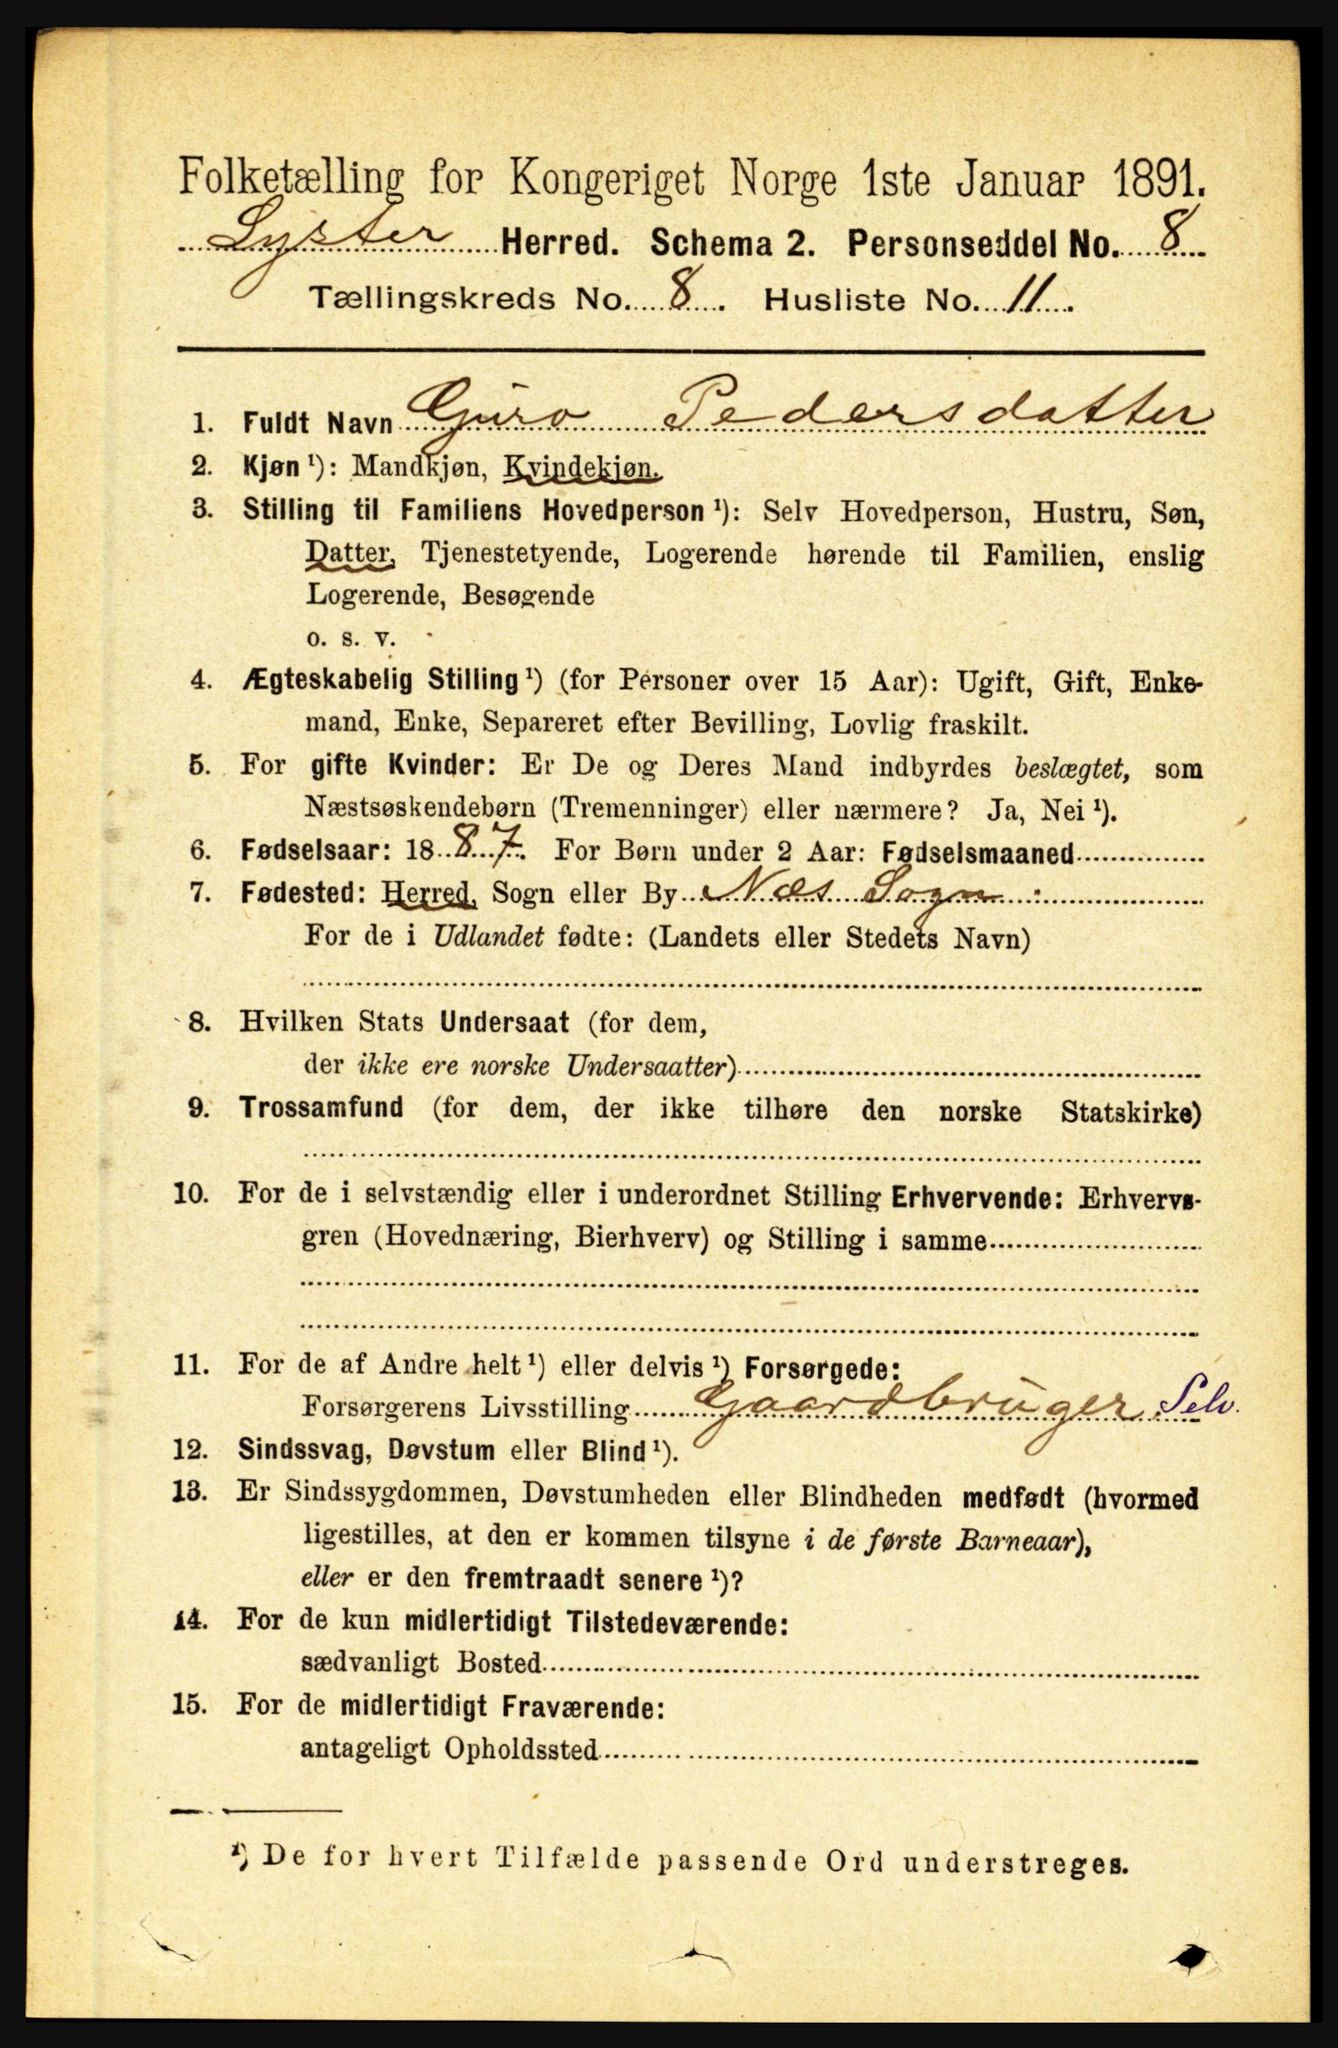 Folketælling for Kongeriget Norge 1ste Januar 1891.
Lyster Herred. Schema 2. Personseddel No. 8
Tællingskreds No. 8. Husliste No. 11.
1. Fuldt Navn Guro Pedersdatter
2. Kjøn ¹): Mandkjøn, Kvindekjøn.
3. Stilling til Familiens Hovedperson ¹): Selv Hovedperson, Hustru, Søn,
Datter, Tjenestetyende, Logerende hørende til Familien, enslig
Logerende, Besøgende
o. s. v.
4. Ægteskabelig Stilling ¹) (for Personer over 15 Aar): Ugift, Gift, Enke-
mand, Enke, Separeret efter Bevilling, Lovlig fraskilt.
5. For gifte Kvinder: Er De og Deres Mand indbyrdes beslægtet, som
Næstsøskendebørn (Tremenninger) eller nærmere? Ja, Nei ¹).
6. Fødselsaar: 1887. For Børn under 2 Aar: Fødselsmaaned
7. Fødested: Herred, Sogn eller By Næs Sogn
For de i Udlandet fødte: (Landets eller Stedets Navn)
8. Hvilken Stats Undersaat (for dem,
der ikke ere norske Undersaatter)
9. Trossamfund (for dem, der ikke tilhøre den norske Statskirke)
10. For de i selvstændig eller i underordnet Stilling Erhvervende: Erhvervs-
gren (Hovednæring, Bierhverv) og Stilling i samme
11. For de af Andre helt ¹) eller delvis ¹) Forsørgede:
Forsørgerens Livsstilling Gaardbruger Selv.
12. Sindssvag, Døvstum eller Blind ¹).
13. Er Sindssygdommen, Døvstumheden eller Blindheden medfødt (hvormed
ligestilles, at den er kommen tilsyne i de første Barneaar),
eller er den fremtraadt senere ¹)?
14. For de kun midlertidigt Tilstedeværende:
sædvanligt Bosted
15. For de midlertidigt Fraværende:
antageligt Opholdssted
¹) De for hvert Tilfælde passende Ord understreges.